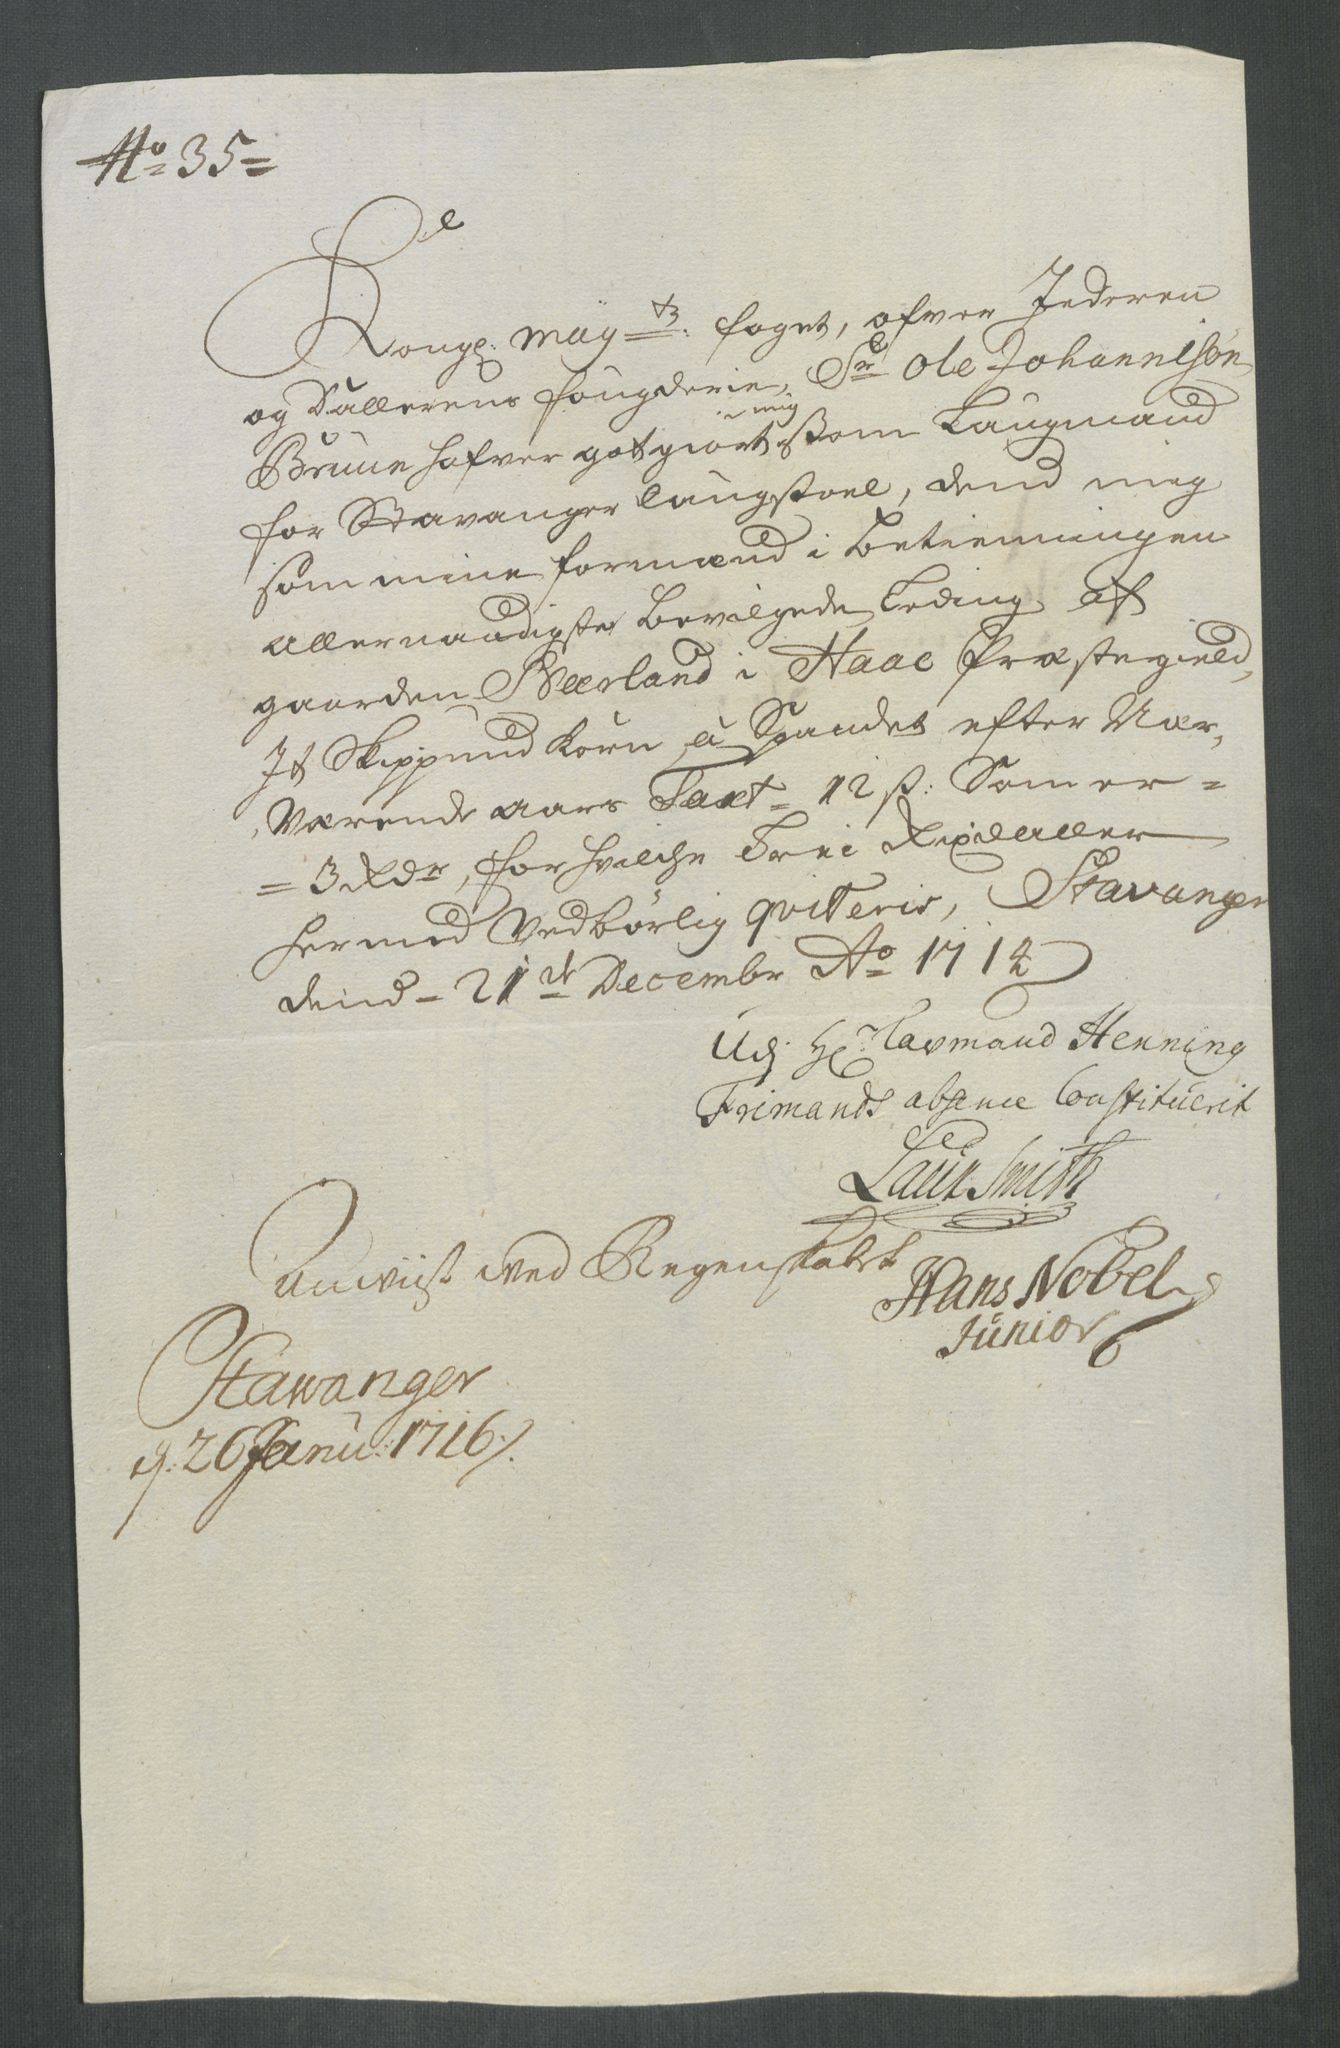 No 35=
Kongl: May:ts foget, ofver Jederen
og Dallernes fougderie, Sr Ole Johannisøn
Bruun hafver gotgiort mig som Laugmand
for Stavanger laugstoel, dend mig
som mine formænd i betienningen
allernaadigste bevilgede Leding af
gaarden Bierland i Haae Præstegield,
It Skippund Korn, â Spandet efter Nær,
værende aars Taxt = 12 ß: Som er =
= 3 Rdr, for hvilche Trei Rixdaller
hermed Vedbørlig qviteris, Stavanger
dend - 21de Decembr Ao 1714
Udj Hr Lavmand Henning
Frimands absence Constituerit
Laur Smith
Anviist ved Regenskabet
Hans Nobel
Junior
Stawanger
d. 26 Janu: 1716.